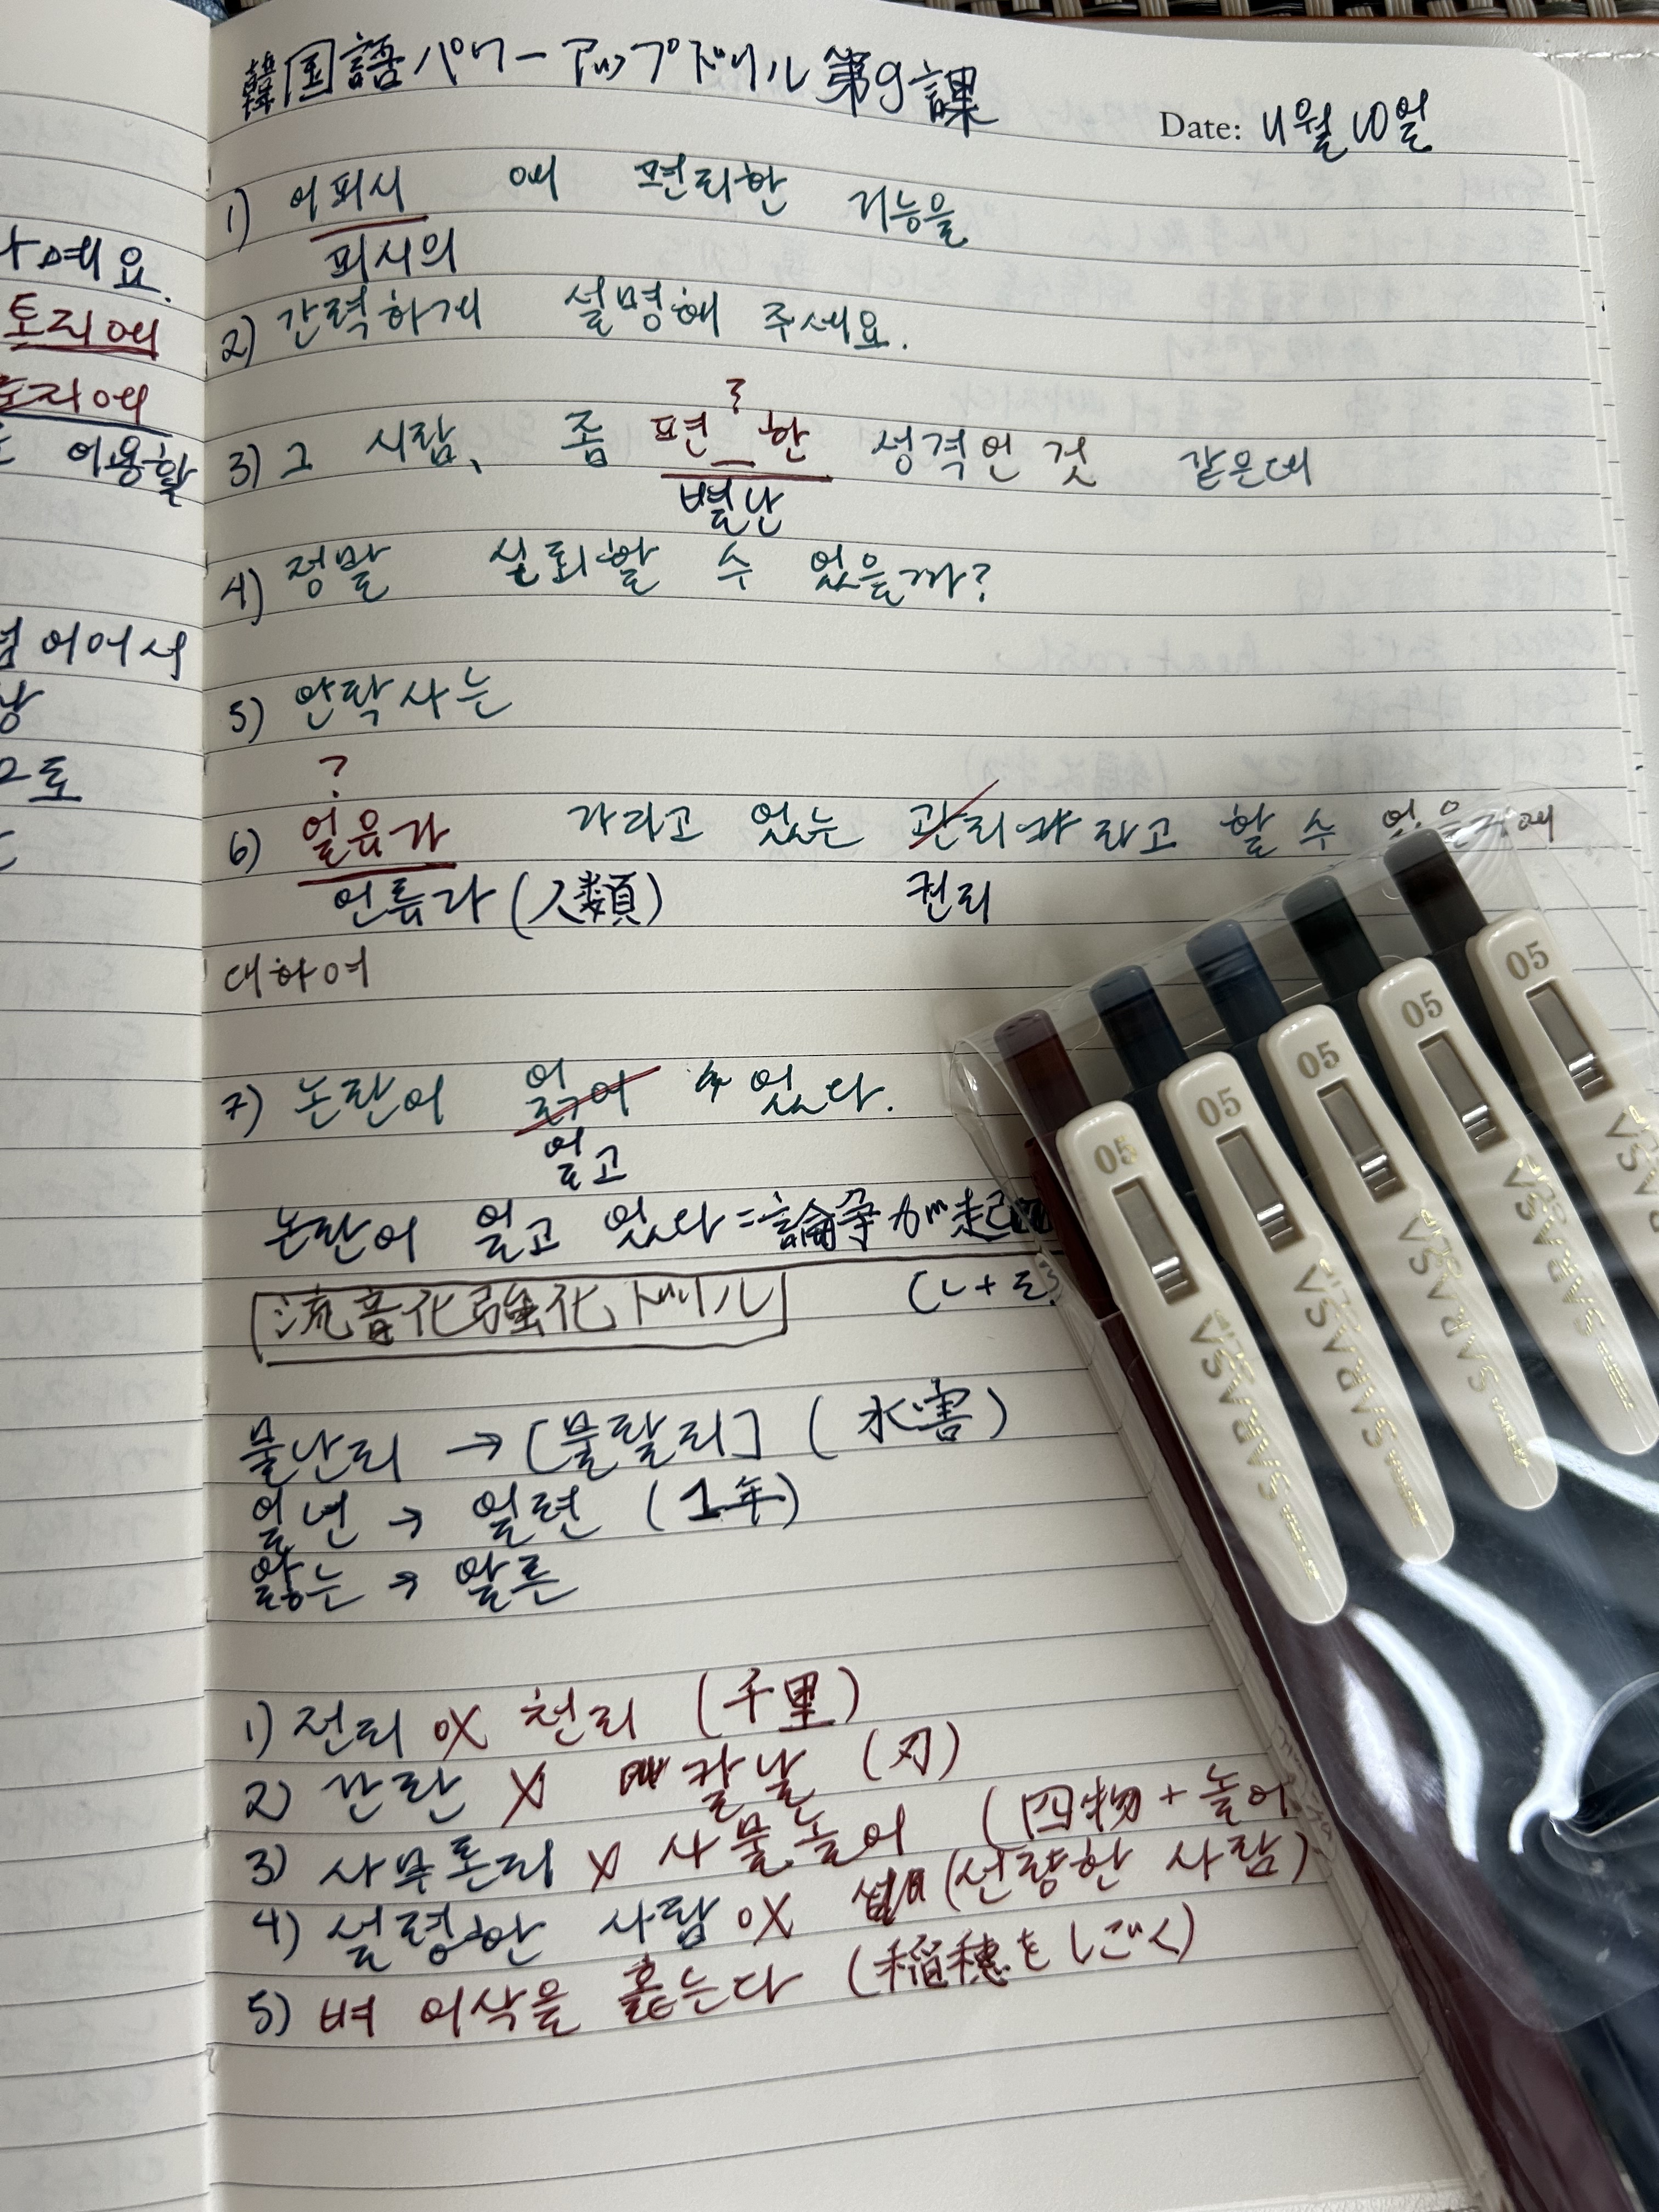 韓国語パワーアップドリル 第9課
Date: 11월 10일
1) 이피시 에 편리한 기능을
피시의
2) 간력하게 설명해 주세요.
?
3) 그 사람, 좀 편 한 성격인 것 같은데
별난
4) 정말 신뢰할 수 있을까?
5) 안락사는
?
6) 일유가 가리고 있는 관리 라고 할 수 있는
인류가 (人類) 권리
대하여
7) 논란이 있다.
일고
논란이 일고 있다 = 論争が起
流音化強化ドリル (ㄴ+ㄹ
물난리 → [물랄리] (水害)
일년 → 일련 (1年)
앓는 → 알른
1) 전리 X 천리 (千里)
2) 칸란 X 칼날 (刃)
3) 사무론리 X 사물놀이 (四物 + 놀이
4) 설령한 사람 X (선량한 사람)
5) 벼 이삭을 훑는다 (稲穂をしごく)
나예요.
토리에
토리에
이용할
넘어어서
낭
으로
05
05
05
05
05
SARASA
SARASA
SARASA
SARASA